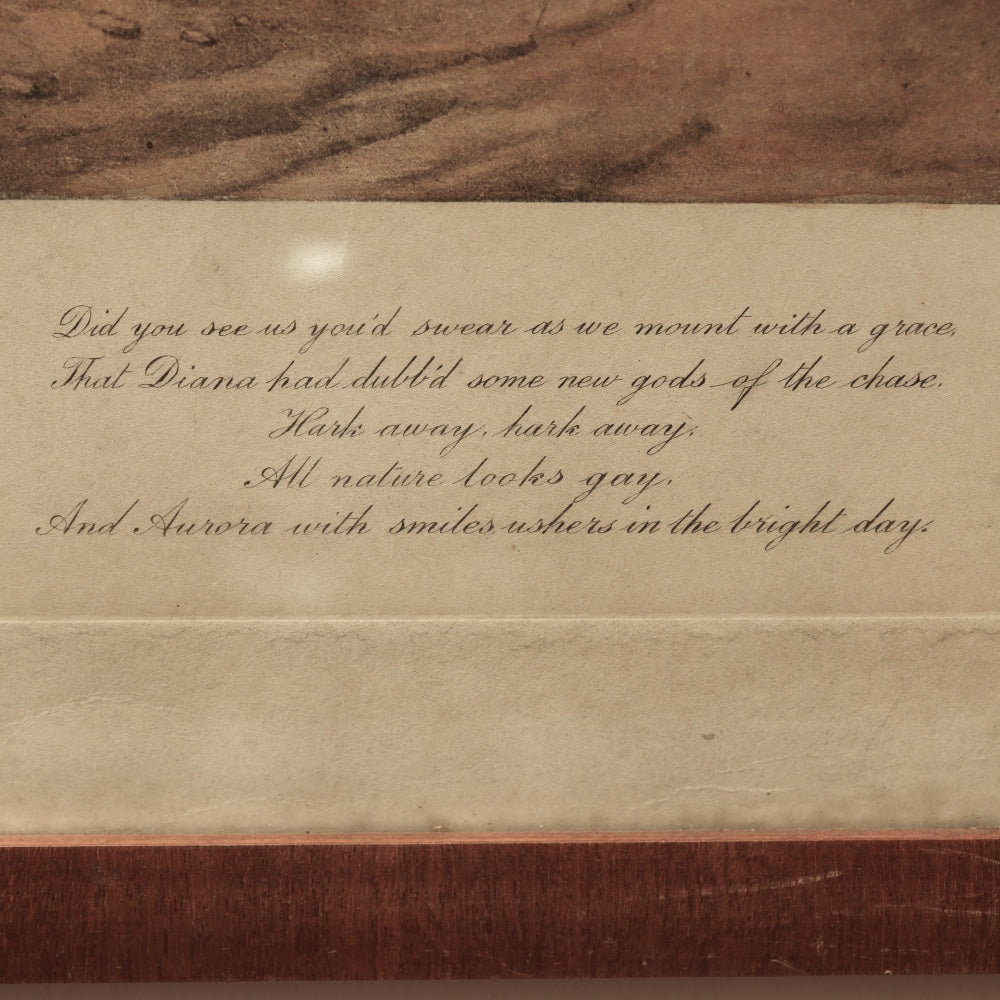 Did you see us you'd swear as we mount with a grace,
That Diana had dubb'd some new gods of the chase.
Hark away, hark away,
All nature looks gay,
And Aurora with smiles ushers in the bright day.